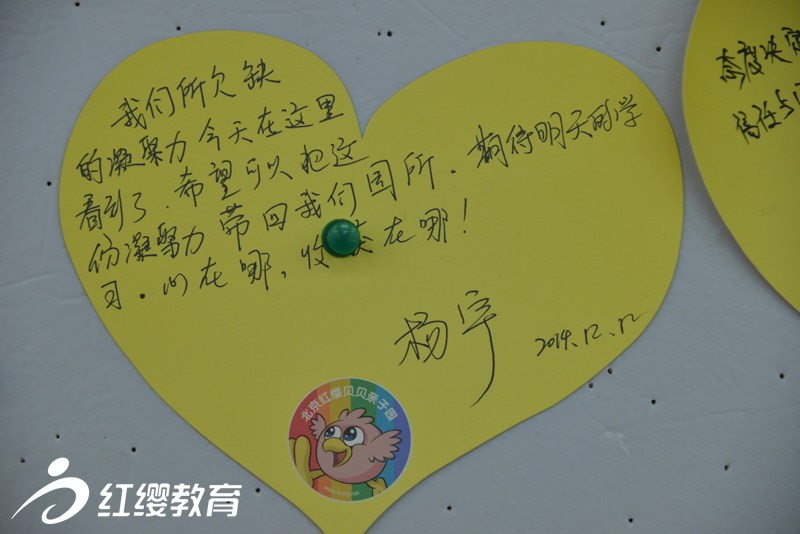 我们所欠缺
的凝聚力今天在这里
看到了.希望可以把这
份凝聚力带回我们园所.期待明天的学
习.心在哪,收在哪!
杨宇
2014.12.12
北京红缨贝贝亲子园
红缨教育
态度决
信任与